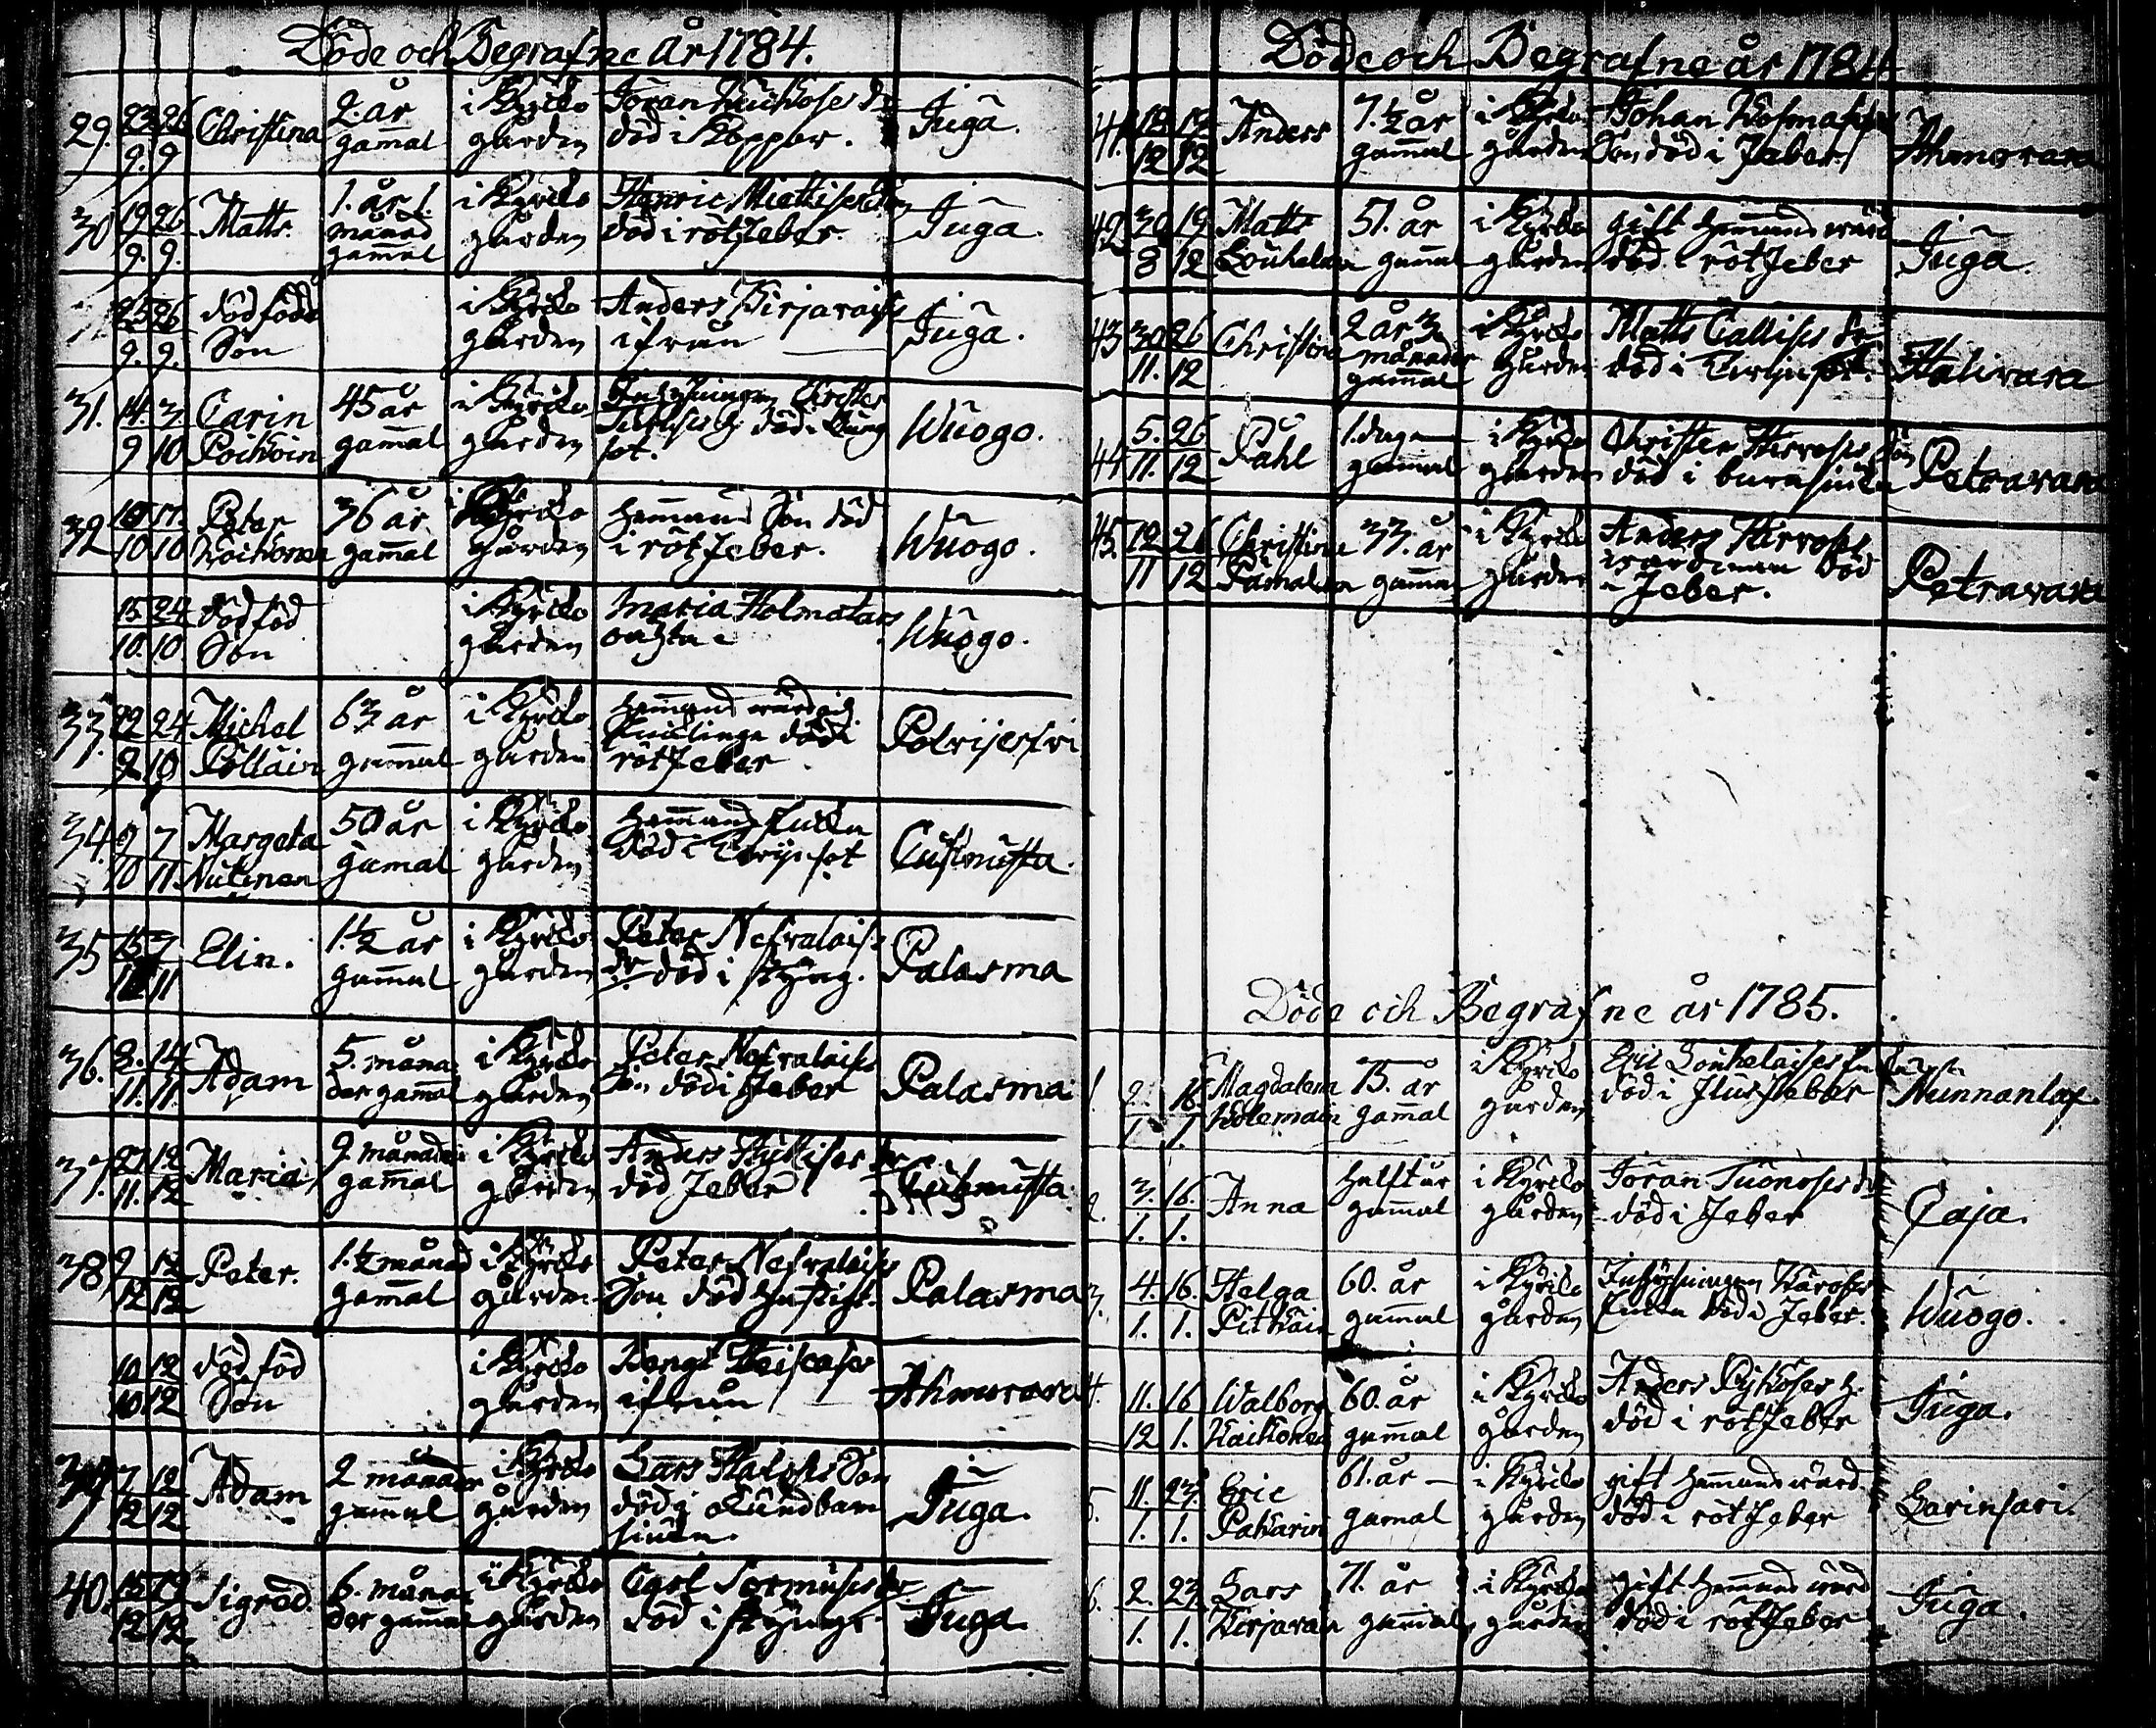 Döde och Begrafne år 1784.
29. 23/9. 26/9 Christina 2. år gammal i Kyrko gården Göran död i Koppor. Juga.
30 19/9. 26/9. Matts. 1. år 1. månad gammal i Kyrko gården Henric död i rötfeber. Juga.
25/9. 26/9. dödfödd Son i Kyrko gården Anders Kirjarais ifrån Juga.
31. 14./9 3/10 Carin Poikoin 45 år gammal i Kyrko gården Inhysningen Crister död i Lung sot. Wuogo.
32 10/10 17/10 Peter Koikonen 36 år gammal i Kyrko gården hemmans Son död i rötfeber. Wuogo.
15/10. 24/10 dödfödd Son i Kyrko gården Maria Holmatars oägta Wuogo.
33. 22/9 24/10 Michel Polläin 63 år gammal i Kyrko gården hemmans död i rötfeber Polvijerfvi
34. 9/10 7/11 Margeta Nutinen 50 år gammal i Kyrko gården hemmans Enka död i Tvijnsot
35 15/ 7/11 Elin. 1. ½ år gammal i Kyrko gården Peter Nefvalais dr död i styng. Palasma
36. 8./11. 14/11. Adam 5. måna der gammal i Kyrko gården Peter Nefvalais Son död i feber Palasma
37. 27/11. 12/12 Maria 9. månader gammal i Kyrko gården Anders dr död feber
38 9/12 12/12 Peter. 1. ½ månad gammal i Kyrko gården Peter Nefvalais Son död hastigt. Palasma
10/10 12/12 dödfödd Son i Kyrko gården Bengt ifrån Ahmovara
39 7/12 12/12 Adam 2 månader gammal i Kyrko gården Lars Son död i okänd barn siuka. Juga.
40. 15/12 19/12 Sigrid. 6. måna der gammal i Kyrko gården Carl Sormuses dr död i styng Juga.
Döde och Begrafne år 1784
41. 12/12 19/12 Anders 7. ½ år gammal i Kyrko gården Johan Son död i feber Ahmovara
42 30/8 19/12 Matts Louhelain 51. år gammal i Kyrko gården gift hemmans wärd död i rötfeber Juga.
43 30/11. 26/12 Christina 2 år 3 månader gammal i Kyrko gården Matts Callises dr död i Halivara
44 5./11. 26/12 Pahl 1. dag gammal i Kyrko gården Christer Hirvoses Son död i barnsiuka Petravara
45. 12/11 26/12 Christina Pämälen 33. år gammal i Kyrko gården Anders Hirvoses död i feber. Petravara
Döde och Begrafne år 1785.
1. 2./1. 16./1. Magdalena 75. år gammal i Kyrko gården Eric Louhelaises död i Nunnanlax
2. 3./1. 16./1. Anna halft år gammal i Kyrko gården Göran Tuonoses dr död i feber Caja.
3. 4./1. 16./1. Helga Pitkäin 60. år gammal i Kyrko gården Inhysningen Enka död i feber. Wuogo.
4. 11./12 16/1. Walborg Kaikonen 60. år gammal i Kyrko gården Anders h. död i rötfeber Juga.
5. 11./1. 23./1. Eric Pakarin 61. år gamal i Kyrko gården gift hemmans wärd död i rötfeber Larinsari.
6. 2./1. 23./1. Lars Kirjavain 71. år gammal i Kyrko gården gift hemmans wärd död i rötfeber Juga.